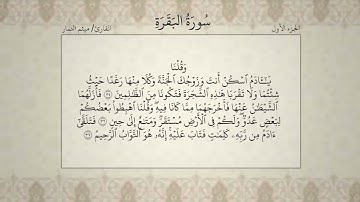 الجزء الأول
سُورَةُ البَقَرَةِ
القارئ/ ميثم التمار
وَقُلْنَا
يَـٰٓـَٔادَمُ ٱسْكُنْ أَنتَ وَزَوْجُكَ ٱلْجَنَّةَ وَكُلَا مِنْهَا رَغَدًا حَيْثُ
شِئْتُمَا وَلَا تَقْرَبَا هَـٰذِهِ ٱلشَّجَرَةَ فَتَكُونَا مِنَ ٱلظَّـٰلِمِينَ ﴿٣٥﴾ فَأَزَلَّهُمَا
ٱلشَّيْطَـٰنُ عَنْهَا فَأَخْرَجَهُمَا مِمَّا كَانَا فِيهِ ۖ وَقُلْنَا ٱهْبِطُوا۟ بَعْضُكُمْ
لِبَعْضٍ عَدُوٌّ ۖ وَلَكُمْ فِى ٱلْأَرْضِ مُسْتَقَرٌّ وَمَتَـٰعٌ إِلَىٰ حِينٍ ﴿٣٦﴾ فَتَلَقَّىٰٓ
ءَادَمُ مِن رَّبِّهِۦ كَلِمَـٰتٍ فَتَابَ عَلَيْهِ ۚ إِنَّهُۥ هُوَ ٱلتَّوَّابُ ٱلرَّحِيمُ ﴿٣٧﴾